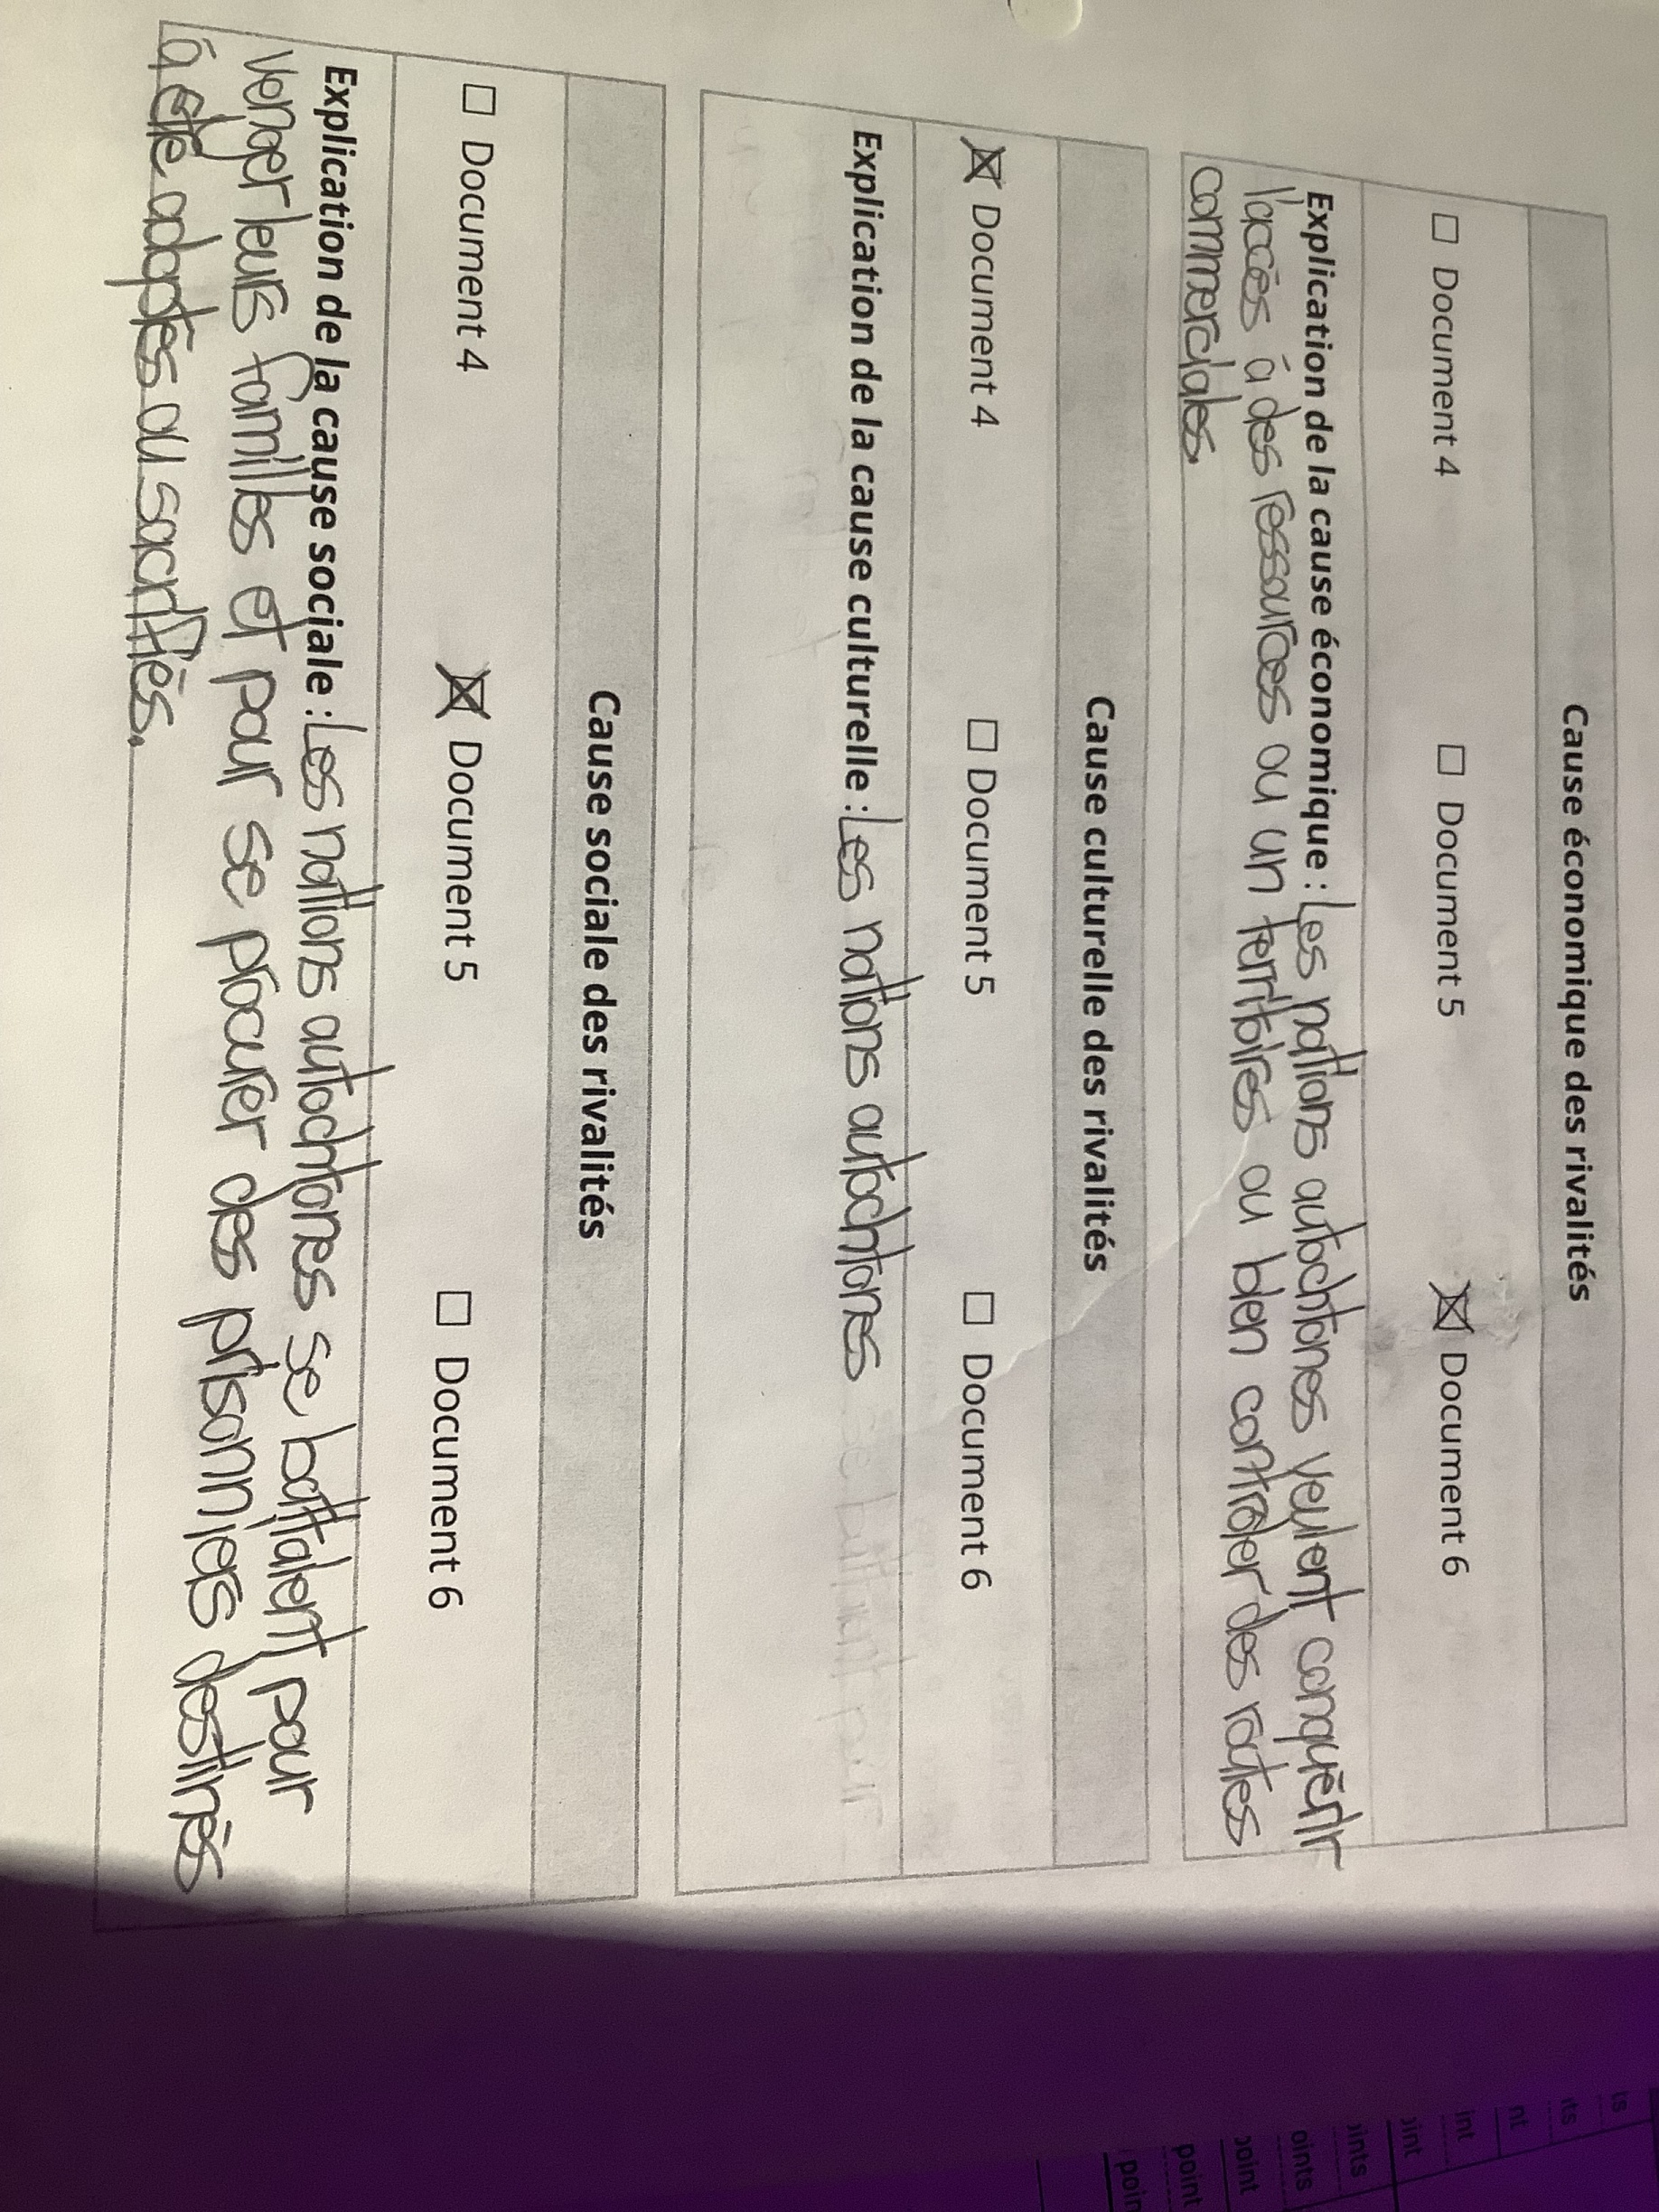 Cause économique des rivalités
☐ Document 4 ☐ Document 5 ☒ Document 6
Explication de la cause économique : Les nations autochtones veulent conquérir
l'accès à des ressources ou un territoires ou bien contrôler des routes
commerciales.
Cause culturelle des rivalités
☒ Document 4 ☐ Document 5 ☐ Document 6
Explication de la cause culturelle : Les nations autochtones
Cause sociale des rivalités
☐ Document 4 ☒ Document 5 ☐ Document 6
Explication de la cause sociale : Les nations autochtones se battaient pour
venger leurs familles et pour se procurer des prisonniers destinés
à être adoptés ou sacrifiés.
ts
nts
nt
int
oint
oints
oints
point
point
poin